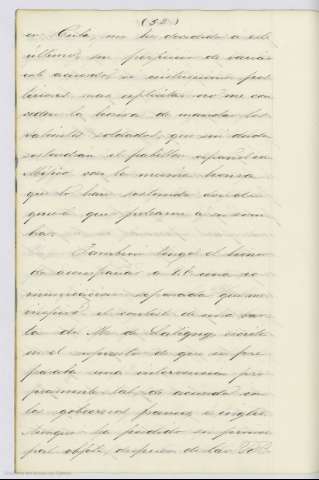 (52)
en Cuba, me he decidido a este
último, sin perjuicio de variar
este acuerdo, si instrucciones pos
teriores, mas esplicitas no me con
ceden la honra de mandar los
valientes soldados, que sin duda
sostendran el pabellon español en
Méjico con la misma honra
que lo han sostenido donde
quiera que pelearon a su som
bra.
Tambien tengo el honor
de acompañar a V.E. una co
municacion separada que me
el conde de
de Mr. de Saligny, escrita
en el supuesto de que se pre
parata una intervencion pro
piamente tal, de acuerdo con
los gobiernos frances e ingles.
Aunque ha perdido su princi
pal objeto, despues de las